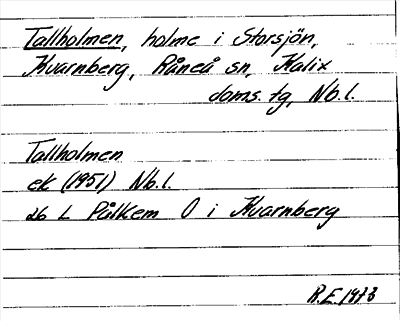 Tallholmen, holme i Storsjön,
Kvarnberg, Råneå sn, Kalix
doms. tg, Nb.l.
Tallholmen
ek (1951) Nb.l.
26 L Pålkem Ö i Kvarnberg
R.E. 1973